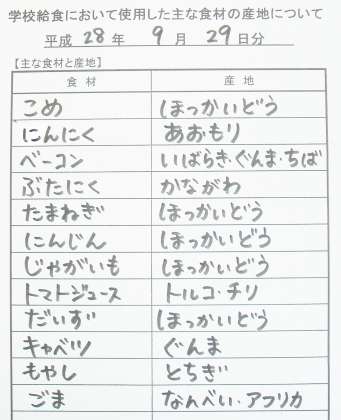 学校給食において使用した主な食材の産地について
平成 28 年 9 月 29 日分
【主な食材と産地】
食 材 産 地
こめ ほっかいどう
にんにく あおもり
ベーコン いばらき・ぐんま・ちば
ぶたにく かながわ
たまねぎ ほっかいどう
にんじん ほっかいどう
じゃがいも ほっかいどう
トマトジュース トルコ・チリ
だいず ほっかいどう
キャベツ ぐんま
もやし とちぎ
ごま なんべい・アフリカ